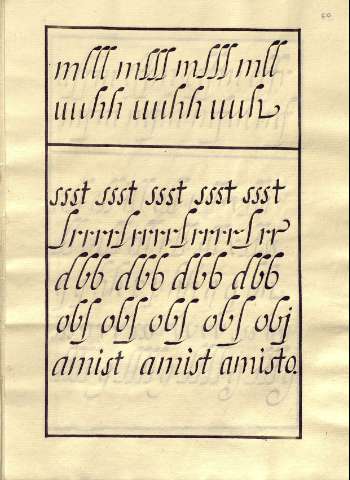 60
mlll mſſſ mſſſ mll
uuhh uuhh uuh
ssst ssst ssst ssst ssst
ſrrrrſrrrrſrrrrſrr
dbb dbb dbb dbb
obſ obſ obſ obſ obj
amist amist amisto.